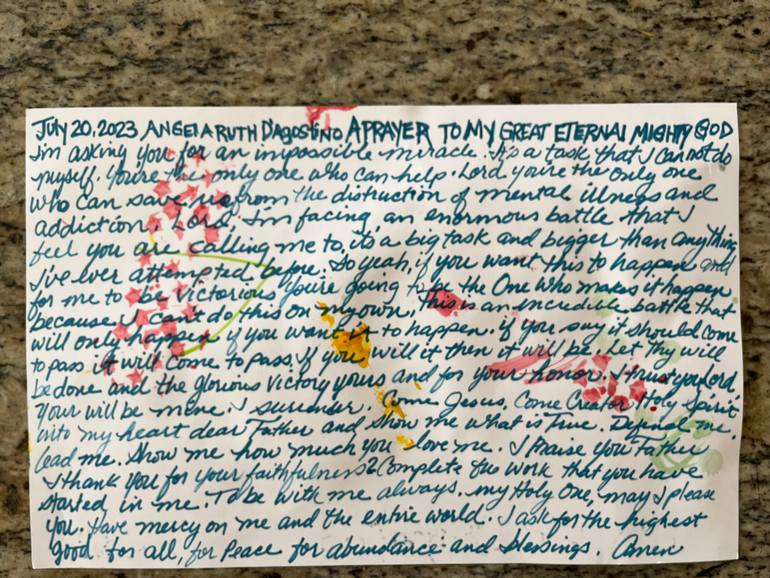 July 20, 2023 ANGELARUTH D'AGOSTINO A PRAYER TO MY GREAT ETERNAL MIGHTY GOD
I'm asking you for an impossible miracle. It's a task that I can not do
myself. You're the only one who can help. Lord you're the only one
who can save us from the distruction of mental illness and
addiction. Lord, I'm facing an enormous battle that I
feel you are calling me to, its a big task and bigger than anything
I've ever attempted before. So yeah, if you want this to happen and
for me to be victorious you're going to be the One who makes it happen
because I can't do this on my own, this is an incredible battle that
will only happen if you want it to happen. if you say it should come
to pass it will come to pass. If you will it then it will be. Let thy will
be done and the glorious victory yours and for your honor. I trust you Lord
Your will be mine. I surrender. Come Jesus, Come Creator Holy Spirit
into my heart dear Father and show me what is True. Defend me.
lead me. Show me how much you love me. I Praise You Father
I thank you for your faithfulness Complete the work that you have
started in me. To be with me always. my Holy One, may I please
you. Have mercy on me and the entire world. I ask for the highest
good for all, for Peace for abundance and blessings. Amen